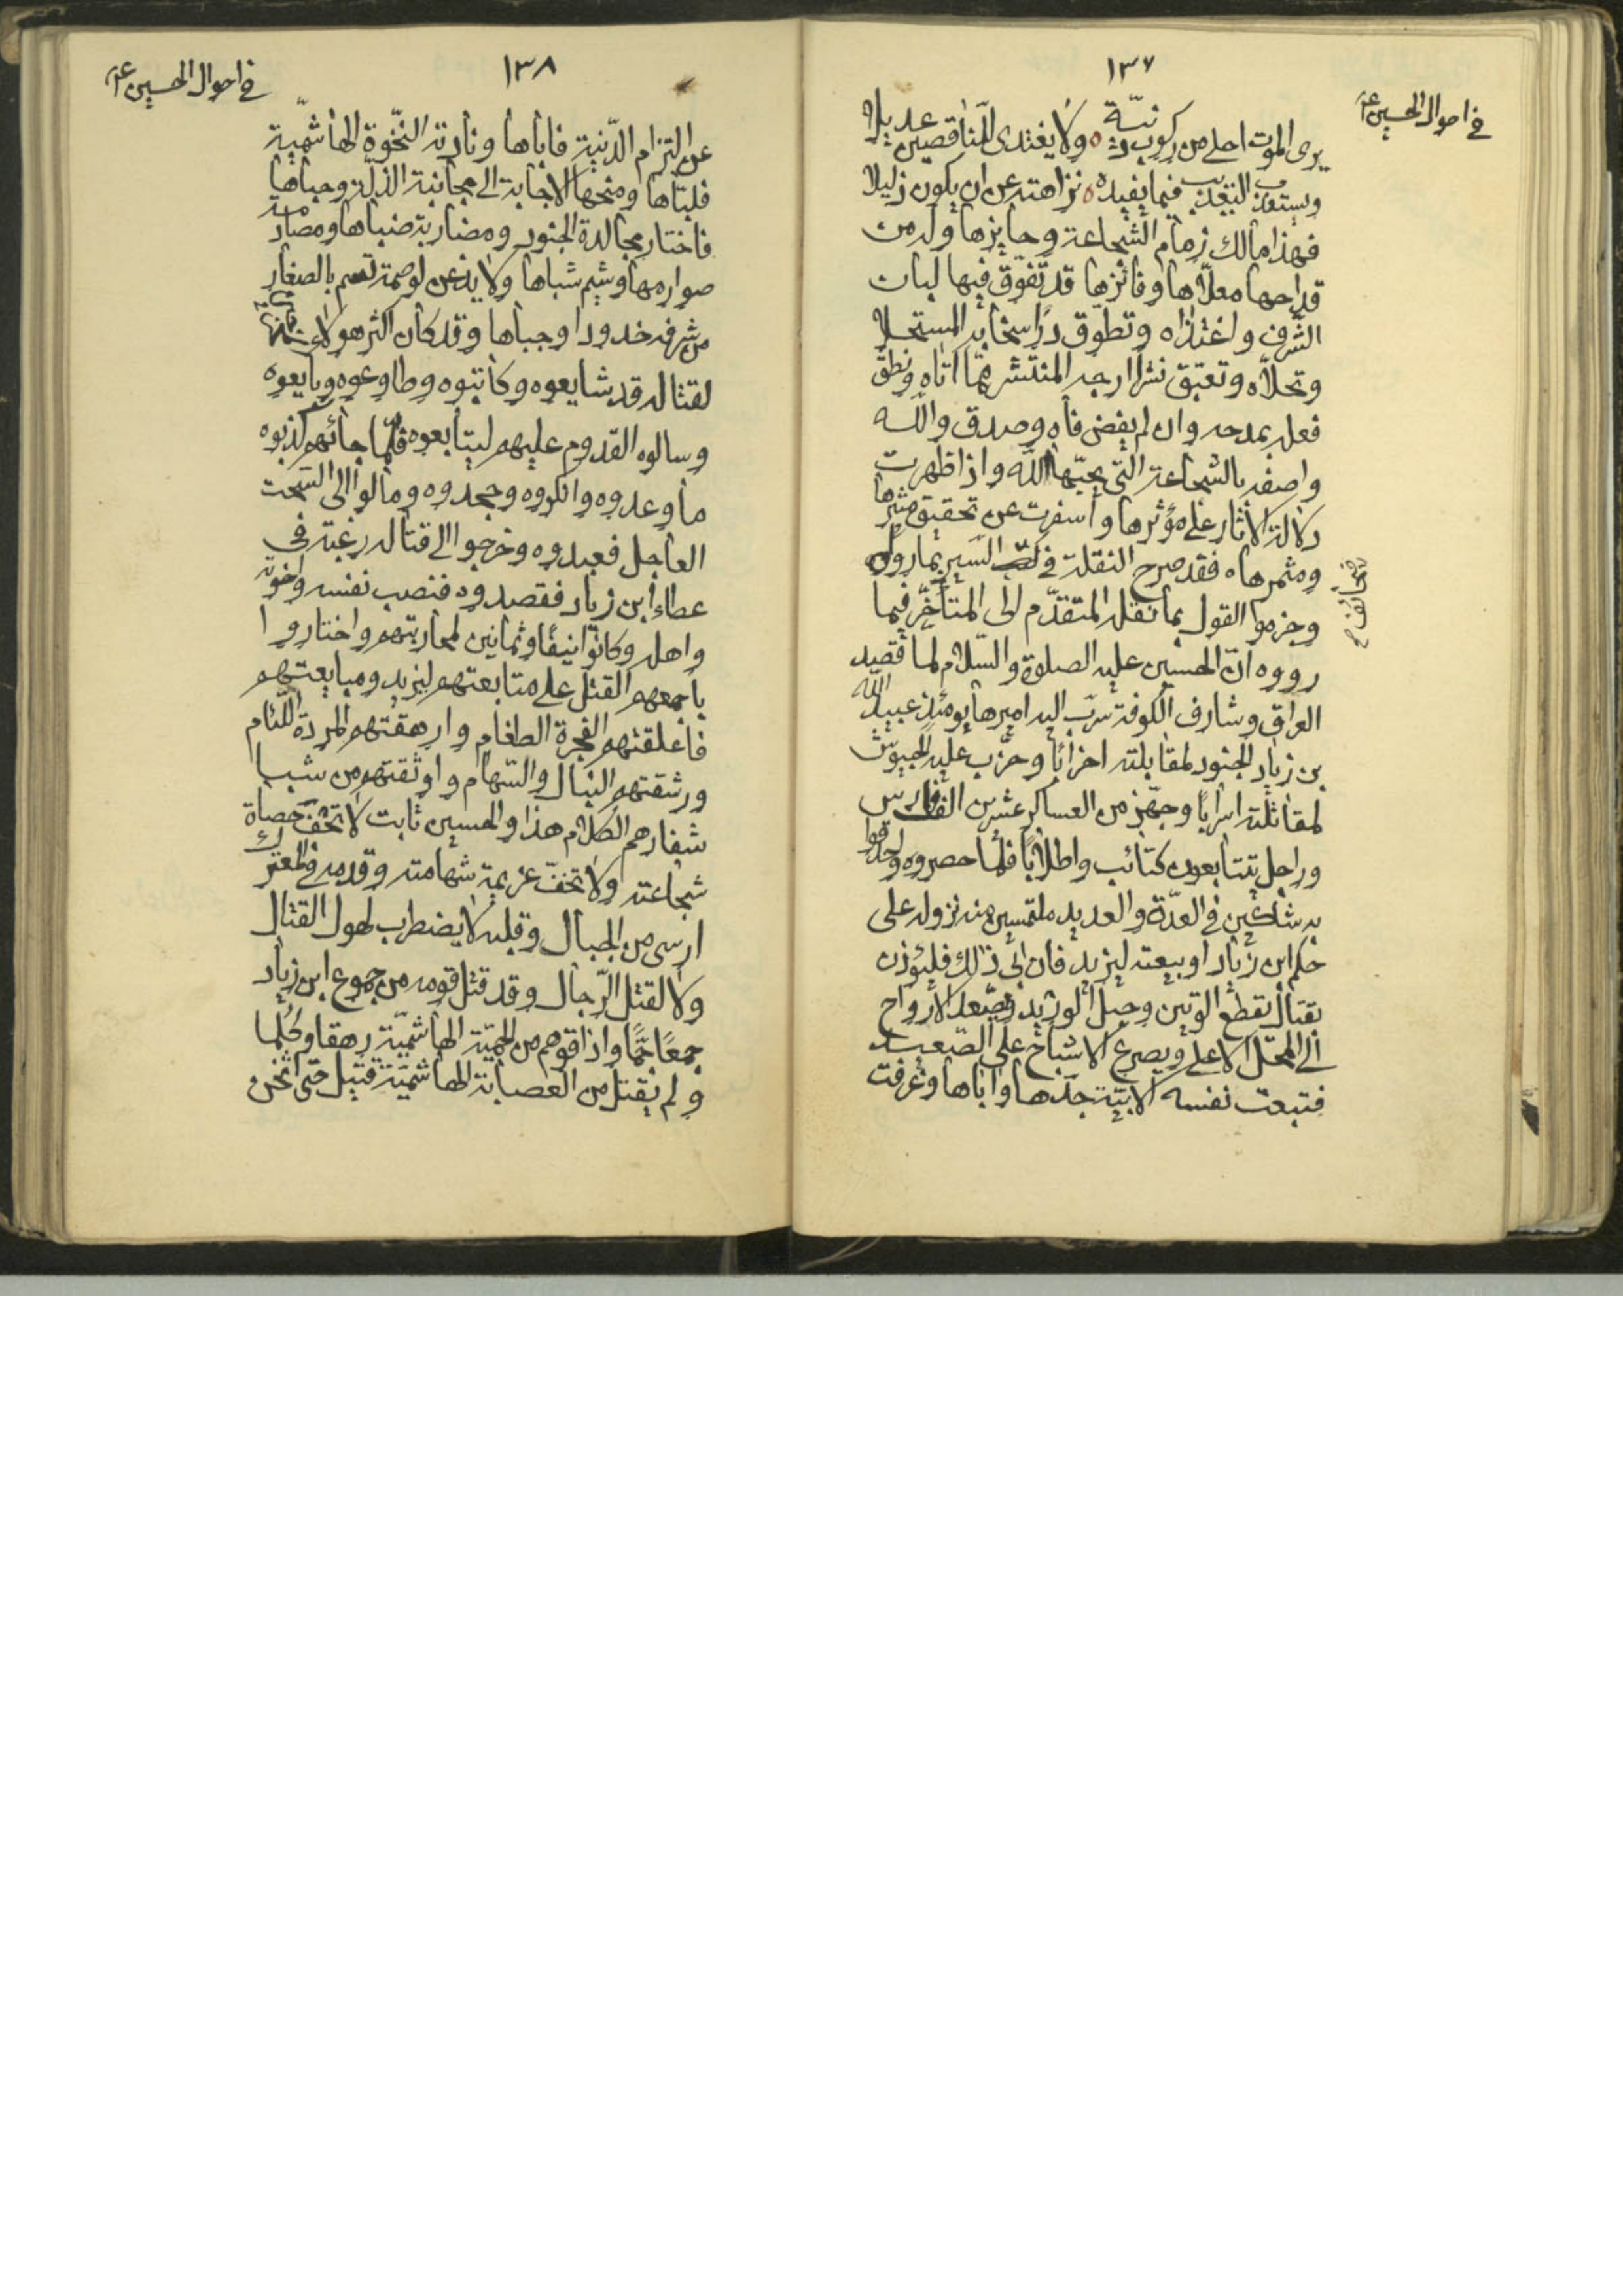 ١٣٧
في احوال الحسين ع
يرى الموت احلى من ركوب دنيّة ولا يغتدى للناقصين عديلا
ويستعذب التعذيب فيما يفيده نزاهته عن ان يكون ذليلا
فهذا مالك زمام الشجاعة وحايزها وله من
قداحها معلّاها وفائزها قد تفوّق فيها لبان
الشرف واغتذاه وتطوّق درّ سخابه المستحلا
وتحلّاه وتعبّق نشرا ارجه المنتشر ممّا اتاه ونطق
فعله بمدحه وان لم يفض فاه وصدق والله
واصفه بالشجاعة التي يحبّها الله واذا ظهرت
دلالة الاثار على مؤثرها واسفرت عن تحقيق مثيرها
ومثمرها فقد صرح النقلة في صحائف السير بما رواه
صحائف ح
وجزموا القول بما نقله المتقدّم الى المتأخّر فيما
رووه انّ الحسين عليه الصلوة والسّلام لما قصد
العراق وشارف الكوفة سرّب اليه اميرها يومئذ عبيد الله
بن زياد الجنود لمقابلته احزابا وحزّب عليه الجيوش
لمقاتلته اسرابا وجهّز من العساكر عشرين الف فارس
وراجل يتتابعون كتائب واطلابا فلما حصروه واحدقوا
به شاكين في العدّة والعديد ملتمسين منه نزوله على
حكم ابن زياد او بيعته ليزيد فان ابى ذلك فليؤذن
بقتال يقطع الوتين وحبل الوريد ويصّعد الارواح
الى المحلّ الاعلى ويصرع الاشباح على الصّعيد
فتبعت نفسه الابيّة جدّها واباها وعزفت
١٣٨
في احوال الحسين ع
عن التزام الدّنية فاباها ونادته النّخوة الهاشميّة
فلبّاها ومنحها الاجابة الى مجانبة الذلّة وحباها
فاختار مجالدة الجنود ومضاربة ضباها ومصادمة
صوارمها وشيم شباها ولا يذعن لوصمة تسم بالصغار
من شرفه خدودا وجباها وقد كان اكثر هولاء
لقتاله قد شايعوه وكاتبوه وطاوعوه وبايعوه
وسالوه القدوم عليهم ليتابعوه فلمّا جائهم كذبوه
ما وعدوه وانكروه وجحدوه ومالوا الى السّحت
العاجل فعبدوه وخرجوا الى قتاله رغبة في
عطاء ابن زياد فقصدوه فنصب نفسه واخوته
واهله وكانوا نيفا وثمانين لمحاربتهم واختاروا
باجمعهم القتل على متابعتهم ليزيد ومبايعتهم
فاعلقتهم الفجرة الطغام وارهقتهم المردة اللّئام
ورشقتهم النبال والسّهام واوثقتهم من شبا
شفارهم الكلام هذا والحسين ثابت لا تخفّ حصاة
شجاعته ولا تخفّ عزيمة شهامته وقدمه في المعترك
ارسى من الجبال وقلبه لا يضطرب لهول القتال
ولا لقتل الرّجال وقد قتل قومه من جموع ابن زياد
جمعًا جمًّا واذاقوهم من الحميّة الهاشميّة رهقا وكلما
ولم يقتل من العصابة الهاشميّة قتيل حتى اثخن